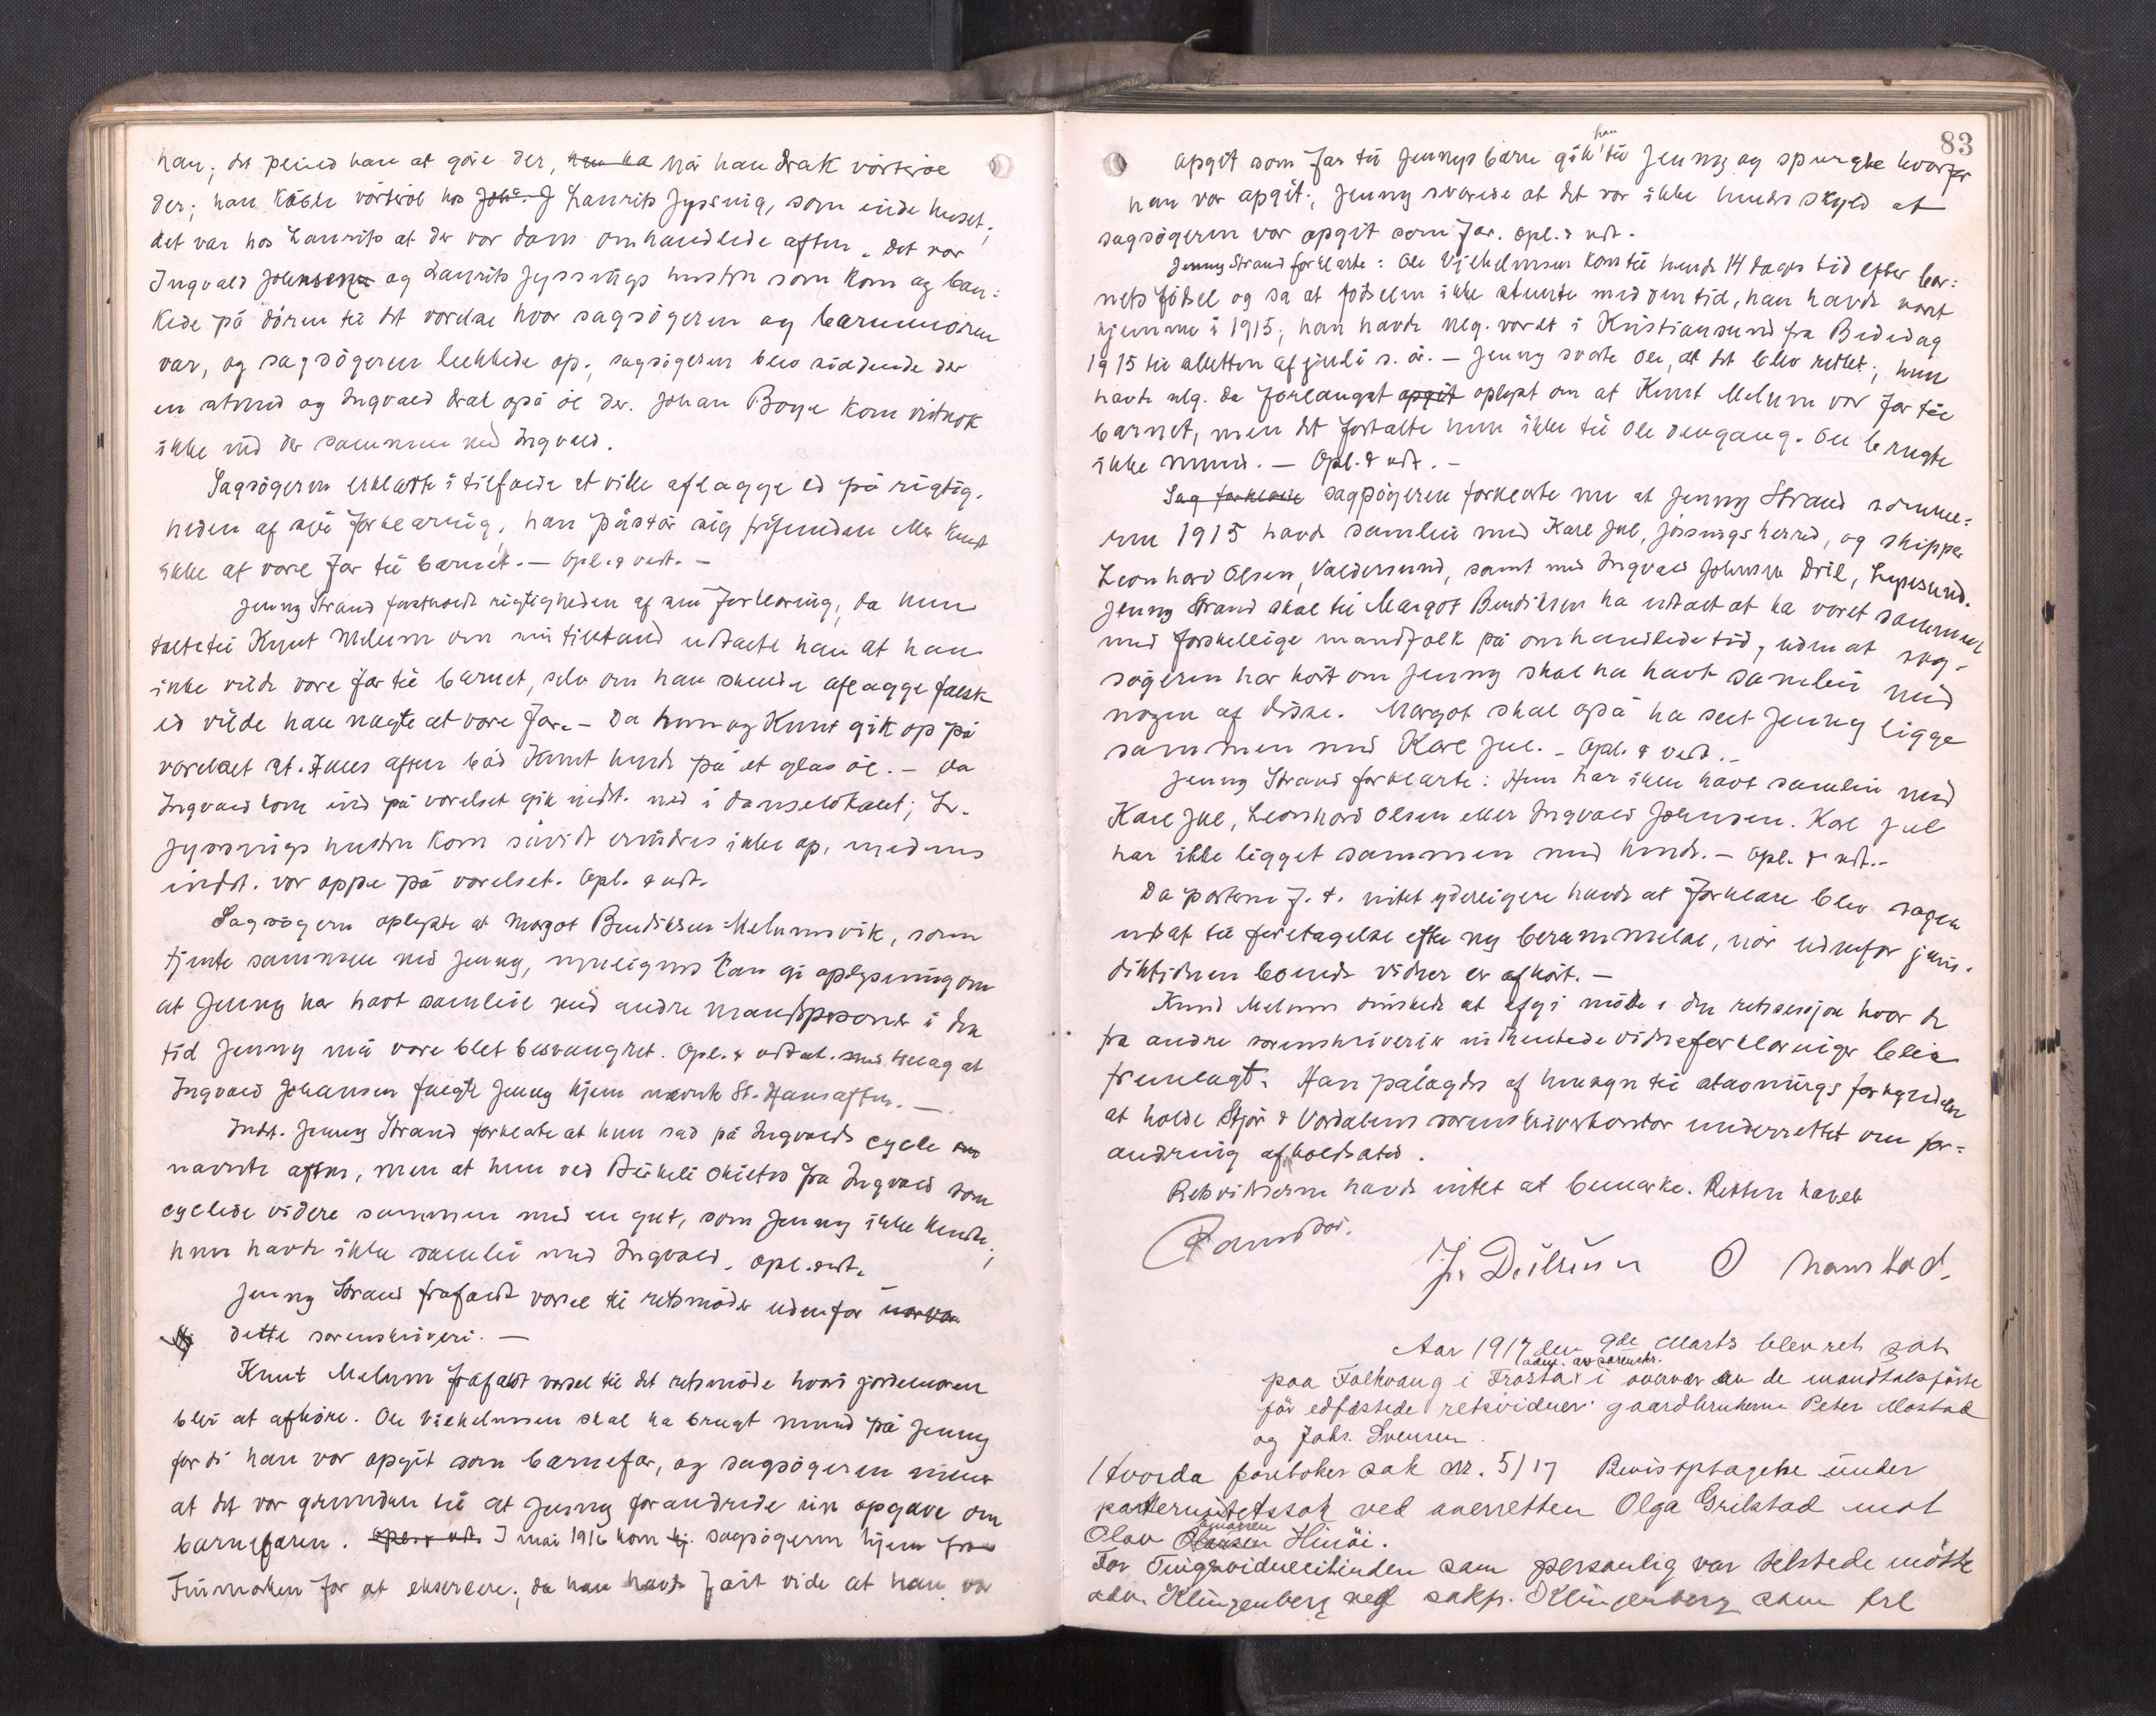 han; det pleied han at göre der, han ha når han drak vörterøl
der; han købte vörterøl hos Joh. J Laurits Jyssing, som eide huset;
det var hos Laurits at der var dans omhandlede aften. Det var
Ingvald Johnsen og Laurits Jyssings hustru som kom og ban:
kede på dören til det værelse hvor sagsögeren og barnemoren
var, og sagsögeren lukkede op; sagsögeren blev siddende der
en stund og Ingvald drak også öl der. Johan Boya kom vistnok
ikke ind der sammen med Ingvald.
Sagsögeren erklærte i tilfælde at ville aflægge ed på rigtig.
heden af sin forklaring, han påstår sig frifunden eller kendt
ikke at være far til barnet. — Opl. & vedt. —
Jenny Strand fastholdt rigtigheden af sin forklaring, da hun
talte til Knut Melum om sin tilstand udtalte han at han
ikke vilde være far til barnet, selv om han skulde aflægge falsk
ed vilde han nægte at være far. — Da hun og Knut gik op på
værelset St. Hans aften bød Knut hende på et glas öl. — Da
Ingvald kom ind på værelset gik indst. ned i danselokalet; L.
Jyssings hustru kom såvidt erindres ikke op, medens
indst. var oppe på værelset. Opl. & vedt.
Sagsögeren oplyste at Margot Bendiksen Melumsvik, som
tjente sammen med Jenny, muligens kan gi oplysning om
at Jenny har havt samleie med andre mandspersoner i den
tid Jenny må være blet besvangret. Opl. & vedtat. med tillæg at
Ingvald Johansen fulgte Jenny hjem nævnte St. Hansaften. —
Indst. Jenny Strand forklarte at hun sad på Ingvalds cycle om
nævnte aften, men at hun ved Birkeli skiltes fra Ingvald som
cyclede videre sammen med en gut, som Jenny ikke kendte;
hun havde ikke samleie med Ingvald. Opl. vedt.
Jenny Strand frafaldt varsel til retsmöder udenfor
dette sorenskriveri. —
Knut Melum frafaldt varsel til det retsmöde hvori jordemoren
blir at afhöre. Ole Vilhelmsen skal ha brugt mund på Jenny
fordi han var opgit som barnefar, og sagsögeren mener
at det var grunden til at Jenny forandrede sin opgave om
barnefaren. Opl. & vedt. I mai 1916 kom hj. sagsögeren hjem fra
Finmarken for at eksercere; da han havde fåt vide at han var
83
opgit som far til Jennys barn gik han til Jenny og spurgte hvorfor
han var opgit; Jenny svarede at det var ikke hendes skyld at
sagsögeren var opgit som far. Opl. & vedt.
Jenny Strand forklarte: Ole Vilhelmsen kom til hende 14 dages tid efter bar:
nets födsel og sa at födselen ikke stemte med den tid, han havde været
hjemme i 1915; han havde nlg. været i Kristiansund fra Bededag
1915 til slutten af juli s. år. — Jenny svarte Ole, at det blev rettet; hun
havde nlg. da forlangt opgit oplyst om at Knut Melum var far til
barnet, men det fortalte hun ikke til Ole dengang. Ole brugte
ikke mund. — Opl. & vedt. —
Sag forklarte sagsögeren forklarte nu at Jenny Strand somme:
ren 1915 havde samleie med Karl Jul, Jössingsherred, og skipper
Leonhard Olsen, Valdersund, samt med Ingvald Johnsen Dril, Lysesund.
Jenny Strand skal til Margot Bendiksen ha udtalt at ha været sammen
med forskellige mandfolk på omhandlede tid, uden at sag-
sögeren har hört om Jenny skal ha havt samleie med
nogen af disse. Margot skal også ha seet Jenny ligge
sammen med Karl Jul. — Opl. & vedt. —
Jenny Strand forklarte: Hun har ikke havt samleie med
Karl Jul, Leonhard Olsen eller Ingvald Johnsen. Karl Jul
har ikke ligget sammen med hende. — Opl. & vedt. —
Da parterne f. t. intet yderligere havde at forklare blev sagen
udsat til foretagelse efter ny berammelse, når udenfor juris-
diktionen boende vidner er afhört. —
Knud Melum önskede at afgi möde i den retssession hvor de
fra andre sorenskriverier indhentede vidneforklaringer blir
fremlagt. Han pålagdes af hensyn til stævnings forkyndelse
at holde Stjör & Værdalens sorenskriverkontor underrettet om for=
andring af boldsted.
Retsvidnerne havde intet at bemærke. Retten hævet
Ramstad.
J. Dillusen O Namstad.
Aar 1917 den 9de Marts blev ret sat
paa Folkvang i Frosta adm. av sorenskr. i overvær av de mandtalsførte
för edfæstede retsvidner: gaardbrukerne Peter Mostad
og Johs. Svensen.
Hvorda foretokes sak nr. 5/17 Bevisoptagelse under
paternitetssak ved overretten Olga Grilstad mot
Olav Olausen Einarsen Hinöi.
For Tingsvidneutinden som personlig var tilstede mötte
adv. Klingenberg ved sakf. O Klingenberg som frl